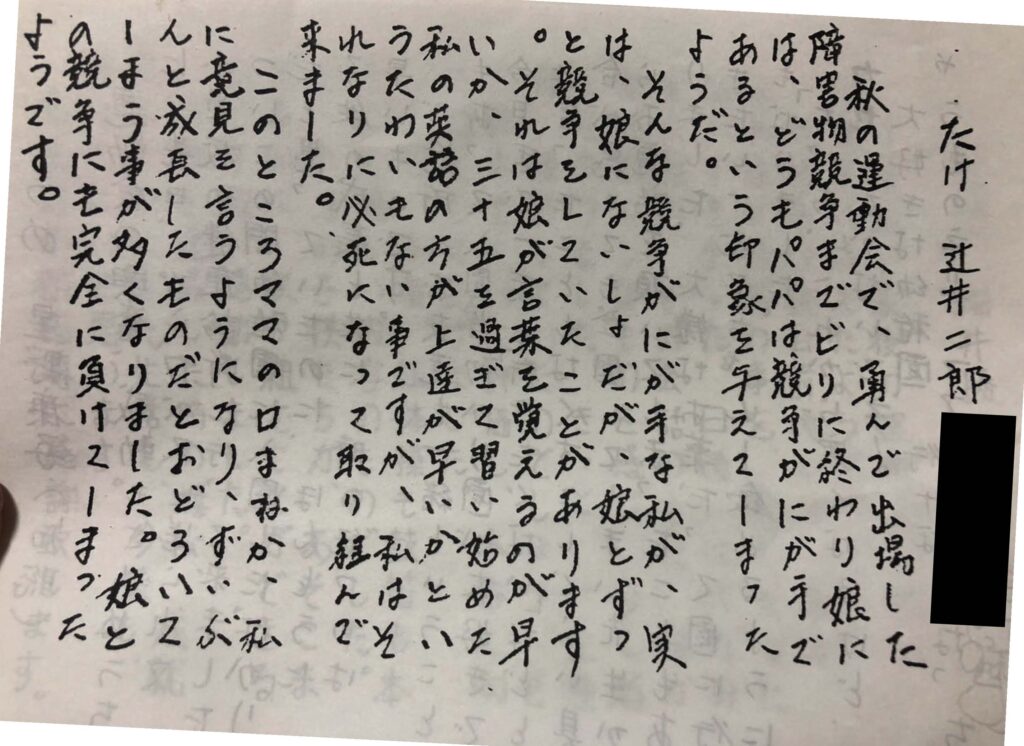 たけ 辻井二郎
秋の運動会で、勇んで出場した
障害物競争までビリに終わり娘に
は、どうもパパは競争がにが手で
あるという印象を与えてしまった
ようだ。
そんな競争がにが手な私が、実
は、娘にないしょだが、娘とずっ
と競争をしていたことがあります
。それは娘が言葉を覚えるのが早
いか、三十五を過ぎて習い始めた
私の英語の方が上達が早いかとい
うたわいもない事ですが、私はそ
れなりに必死になって取り組んで
来ました。
このところママの口まねか、私
に意見を言うようになり、ずいぶ
んと成長したものだとおどろいて
しまう事が多くなりました。娘と
の競争にも完全に負けてしまった
ようです。